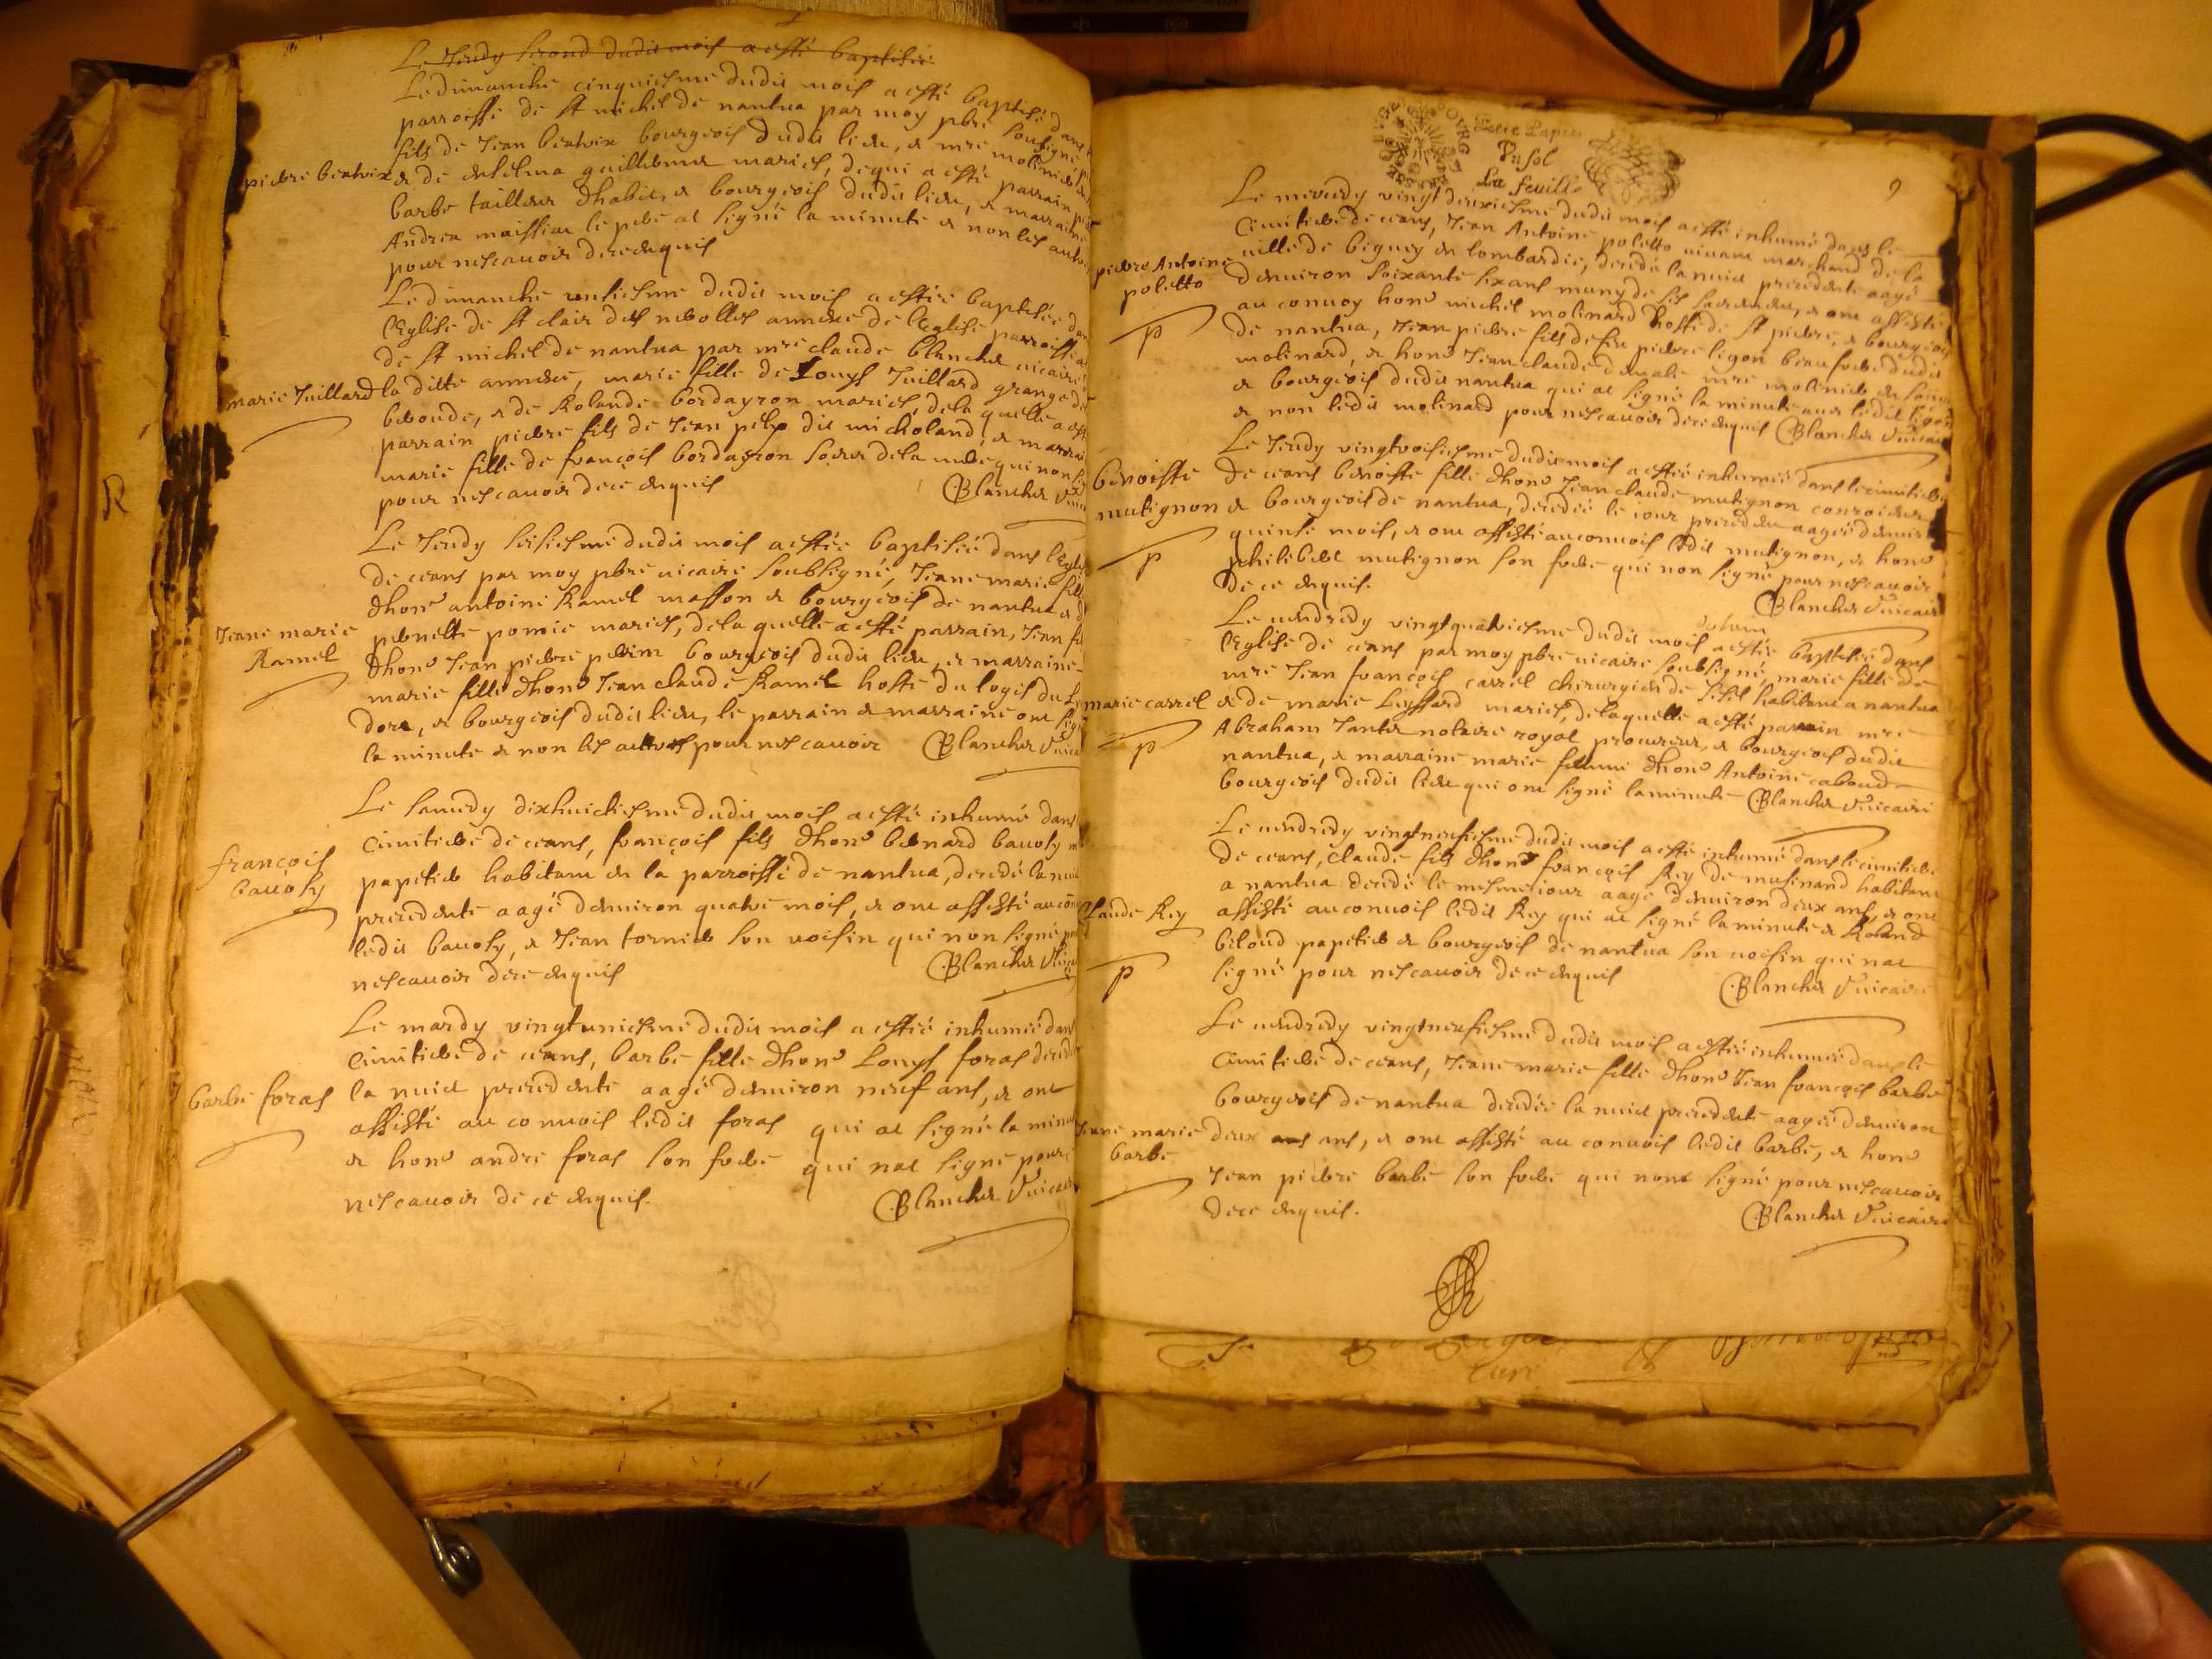 Le Jeudy second dudit mois a esté baptisée
Le dimanche cinquiesme dudit mois a esté baptisé dans
parroisse de St michel de nantua par moy pbre soubsigné
fils de Jean beatrix bourgeois dudit lieu, et mre molinier
pierre beatrix
et de guillerme mariés, de qui a esté parrain
barbe tailleur dhabit, et bourgeois dudit lieu, et marraine
Andrea maissiat le pbre at signé la minute et non les autres
pour nescavoir de ce enquis
Le dimanche unsiesme dudit mois a estée baptisée dans
l'Eglise de St clair des nerolles annexe de l'eglise parroissi
de St michel de nantua par mre claude blanchet vicaire
marie Juillard
la ditte annexe, marie fille de Louys Juillard
et de Rolande bordayron mariés, de la quelle a esté
parrain pierre fils de Jean dit micholand, et marrai
marie fille de françois bordayron soeur de la mere qui non
pour nescavoir de ce enquis
Blanchet
Le Jeudy sesiesme dudit mois a estée baptisée dans l'Egli
de ceans par moy pbre vicaire soubsigné, Jeane marie fille
dhone antoine Ramel masson et bourgeois de nantua et d
Jeane marie
Ramel
pernette pomie mariés, de la quelle a esté parrain, Jean fi
dhone Jean pierre perim bourgeois dudit lieu, et marraine
marie fille dhone Jean claude Ramel hoste du logis du
dore, et bourgeois dudit lieu, le parrain et marraine ont sign
la minute et non les autres pour nescavoir Blanchet Vicai
Le samedy dixhuictiesme dudit mois a esté inhumé dans
cimitiere de ceans, françois fils dhone bernard bavosy
françois
bavosy
papetier habitant en la parroisse de nantua, decedé la nui
precedente aagé denviron quatre mois, et ont assisté au con
ledit bavosy, et Jean tornier son voisin qui non signé
nescavoir de ce enquis
Blanchet Vicai
Le mardy vingtuniesme dudit mois a esté inhumée dans
cimitiere de ceans, barbe fille dhone Louys foras decede
barbe foras
la nuict precedente aagé denviron neuf ans, et ont
assisté au convois ledit foras qui at signé la minu
et hone andre foras son frere qui nat signé pour
nescavoir de ce enquis.
Blanchet Vicair
Petit Papier
Un sol
La feuille
9
Le mecredy vingt deuxiesme dudit mois a esté inhumé dans le
cimitiere de ceans, Jean Antoine poletto vivant marchand de la
pierre Antoine
poletto
ville de begney en lombardie, decedé la nuict precedente aagé
denviron soixante six ans muny de ses sacremens, et ont assisté
au convoy hone michel molinard hoste de St pierre, et bourgeois
p
de nantua, Jean pierre fils de feu pierre ligon beau frere dudit
molinard, et hone Jean claude mre molinier en soie
et bourgeois dudit nantua qui at signé la minute avec ledit ligon
et non ledit molinard pour nescavoir de ce enquis Blanchet Vicair
Le Jeudy vingtroisiesme dudit mois a estée inhumée dans le cimitiere
benoiste
mutignon
de ceans benoiste fille dhone Jean claude mutignon conroieur
et bourgeois de nantua, decedée le jour precedent aagée denviron
quinse mois, et ont assisté au convois ledit mutignon, et hone
p
philibert mutignon son frere qui non signé pour nescavoir
de ce enquis.
Blanchet Vicair
Le vendredy vingtquatriesme dudit mois a estée baptisée dans
l'Eglise de ceans par moy pbre vicaire soubsigné, marie fille de
mre Jean françois carrel chirurgien de habitant a nantua
marie carrel
et de marie Leyssard mariés, de laquelle a esté parrain mre
p
Abraham Jantet notaire royal procureur, et bourgeois dudit
nantua, et marraine marie femme dhone Antoine caboud
bourgeois dudit lieu qui ont signé la minute Blanchet Vicaire
Le vendredy vingtneufiesme dudit mois a esté inhumé dans le cimitiere
de ceans, claude fils dhone françois Rey de musinand habitant
a nantua decedé le mesme jour aagé denviron deux ans, et ont
Claude Rey
assisté au convois ledit Rey qui at signé la minute et Roland
p
beloud papetier et bourgeois de nantua son voisin qui nat
signé pour nescavoir de ce enquis
Blanchet Vicaire
Le vendredy vingtneufiesme dudit mois a estée inhumée dans le
cimitiere de ceans, Jeane marie fille dhone Jean françois barbe
bourgeois de nantua decedée la nuict precedente aagée denviron
Jeane marie
barbe
deux ans ans, et ont assisté au convois ledit barbe, et hone
Jean pierre barbe son frere qui nont signé pour nescavoir
de ce enquis.
Blanchet Vicaire